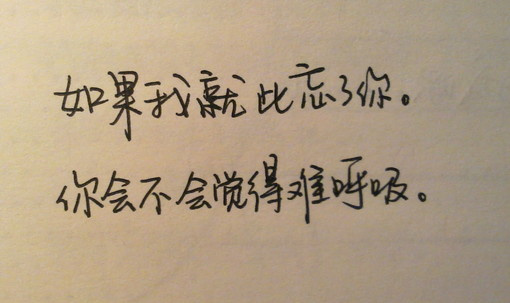 如果我就此忘了你。
你会不会觉得难呼吸。